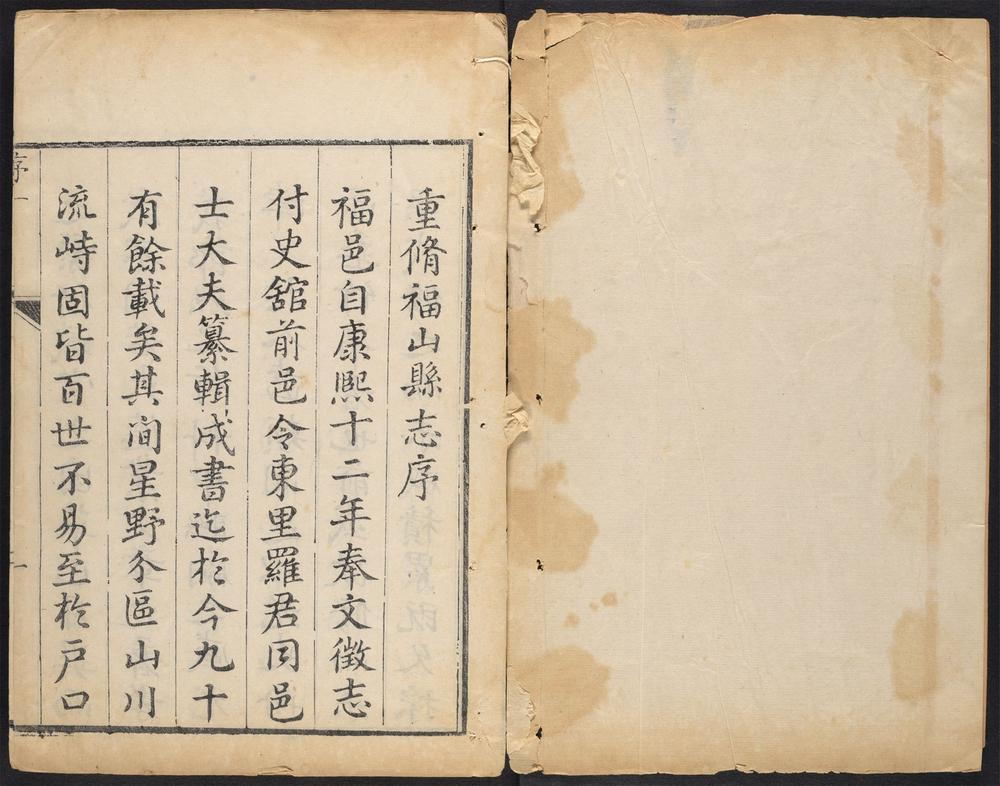 重脩福山縣志序
福邑自康熙十二年奉文徵志
付史舘前邑令東里羅君同邑
士大夫纂輯成書迄於今九十
有餘載矣其间星野分區山川
流峙固皆百世不易至於户口
序
一